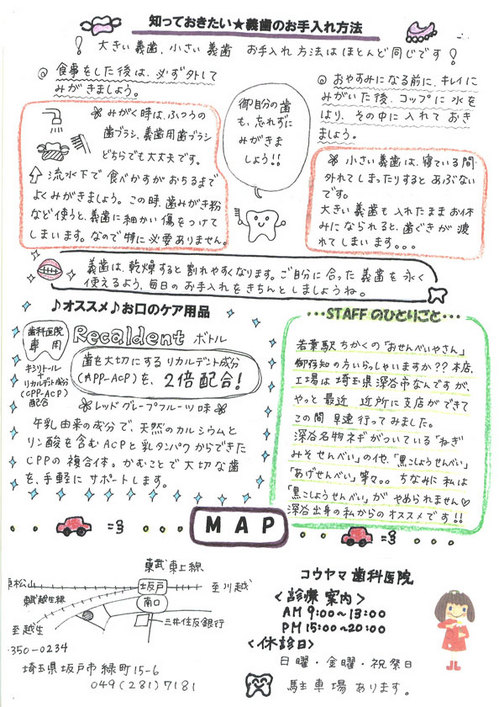 知っておきたい★義歯のお手入れ方法
! 大きい義歯、小さい義歯 お手入れ方法はほとんど同じです !
◎ 食事をした後は、必ず外して
みがきましょう。
※ みがく時は、ふつうの
歯ブラシ、義歯用歯ブラシ
どちらでも大丈夫です。
⇧ 流水下で食べかすがおちるまで
よくみがきましょう。この時、歯みがき粉
など使うと、義歯に細かい傷をつけて
しまいます。なので特に必要ありません。
御自分の歯
も、忘れずに
みがきま
しょう!!
◎ おやすみになる前に、キレイに
みがいた後、コップに水を
はり、その中に入れておき
ましょう。
※ 小さい義歯は、寝ている間
外れてしまったりするとあぶない
です。
大きい義歯も入れたままお休
みになられると、歯ぐきが疲
れてしまいます。。。
義歯は、乾燥すると割れやすくなります。ご自分に合った義歯を永く
使えるよう、毎日のお手入れをきちんとしましょうね。
♪オススメ♪お口のケア用品
歯科医院
専用
Recaldent ボトル
キシリトール
+
リカルデント成分
(CPP-ACP)
配合
歯を大切にするリカルデント成分
(CPP-ACP)を、2倍配合!
※レッドグレープフルーツ味※
牛乳由来の成分で、天然のカルシウムと
リン酸を含むACPと乳タンパクからできた
CPPの複合体。かむことで大切な歯
を、手軽にサポートします。
・・・STAFFのひとりごと・・・
若葉駅ちかくの「おせんべいやさん」
御存知の方いらっしゃいますか??本店、
工場は埼玉県深谷市なんですが、
やっと最近 近所に支店ができて
この間 早速行ってみました。
深谷名物ネギがついている「ねぎ
みそせんべい」の他、「黒こしょうせんべい」
「あげせんべい」等々。。ちなみに私は
「黒こしょうせんべい」がやめられません♡
深谷出身の私からのオススメです!!
MAP
東武東上線
東松山
北坂戸
至川越
東武越生線
南口
至越生
三井住友銀行
350-0234
埼玉県坂戸市緑町15-6
049(281)7181
コウヤマ歯科医院
<診療案内>
AM 9:00~13:00
PM 15:00~20:00
<休診日>
日曜・金曜・祝祭日
駐車場あります。